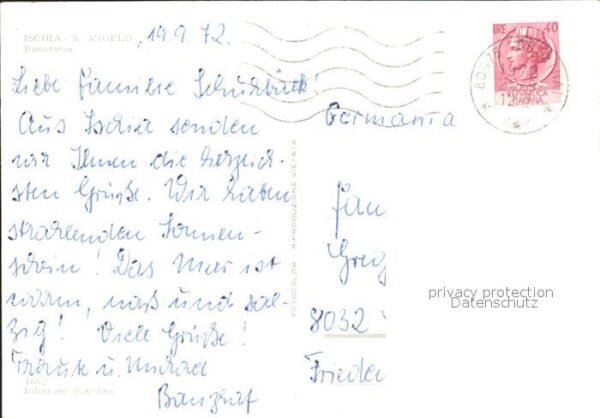 ISCHIA - S. ANGELO
Panorama
19.9.72.
Liebe Familie
Aus Ischia senden
wir Ihnen die herzlich-
sten Grüße. Wir haben
strahlenden Sonnen-
schein! Das Meer ist
warm, naß und sal-
zig! Viele Grüße!
Traute u.
1692
Edizione
FOTOCOLOR RIPRODUZIONE VIETATA
LIRE 40
REPVBBLICA
ITALIANA
Germania
Fam
8032
Frieder
privacy protection
Datenschutz